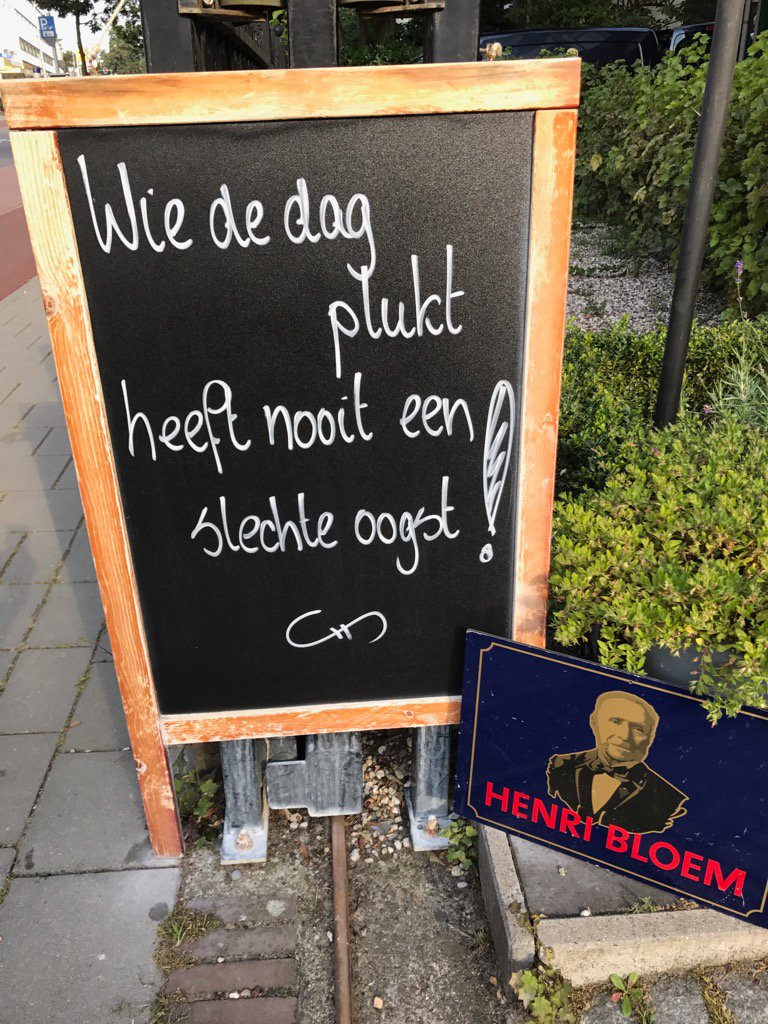 Wie de dag
plukt
heeft nooit een
slechte oogst!
HENRI BLOEM
P